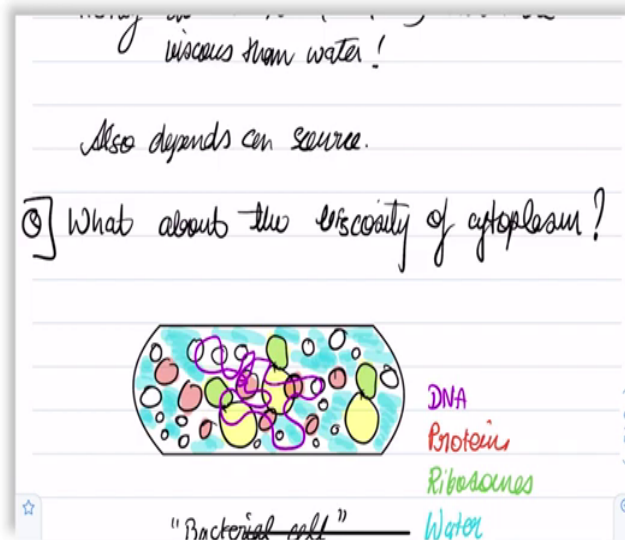 viscous than water!
Also depends on source.
Q] What about the viscosity of cytoplasm?
DNA
Proteins
Ribosomes
"Bacterial cell"
Water